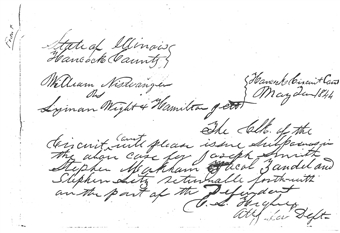 State of Illinois
Hancock County
William Niswanger
vs
Lyman Wight & Hamilton
Hancock Circuit Court
May Term 1844
The Clk. of the
Circuit Court will please issue subpoenas in
the above case for Joseph Smith
Stephen Markham Jacob Zundel and
Stephen Litz returnable forthwith
on the part of the Defendant
Atty for Deft